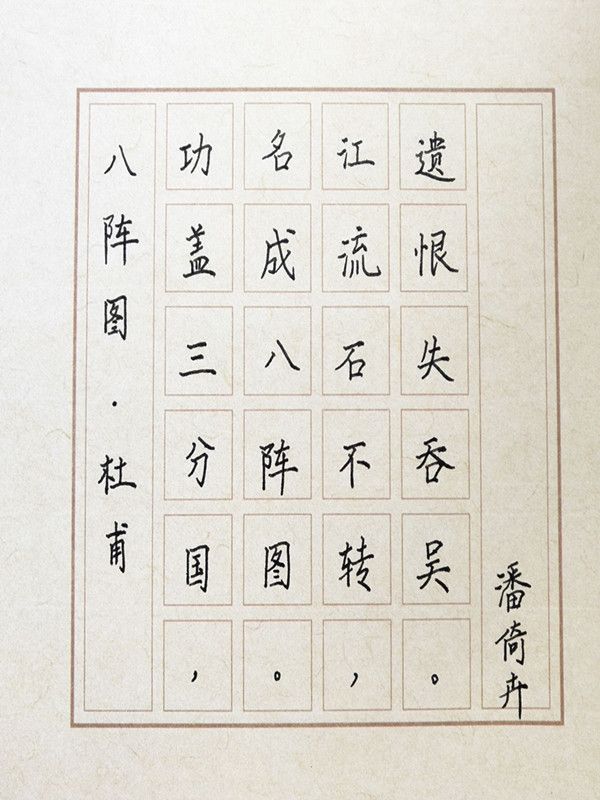 八阵图·杜甫
功盖三分国，
名成八阵图。
江流石不转，
遗恨失吞吴。
潘倚卉